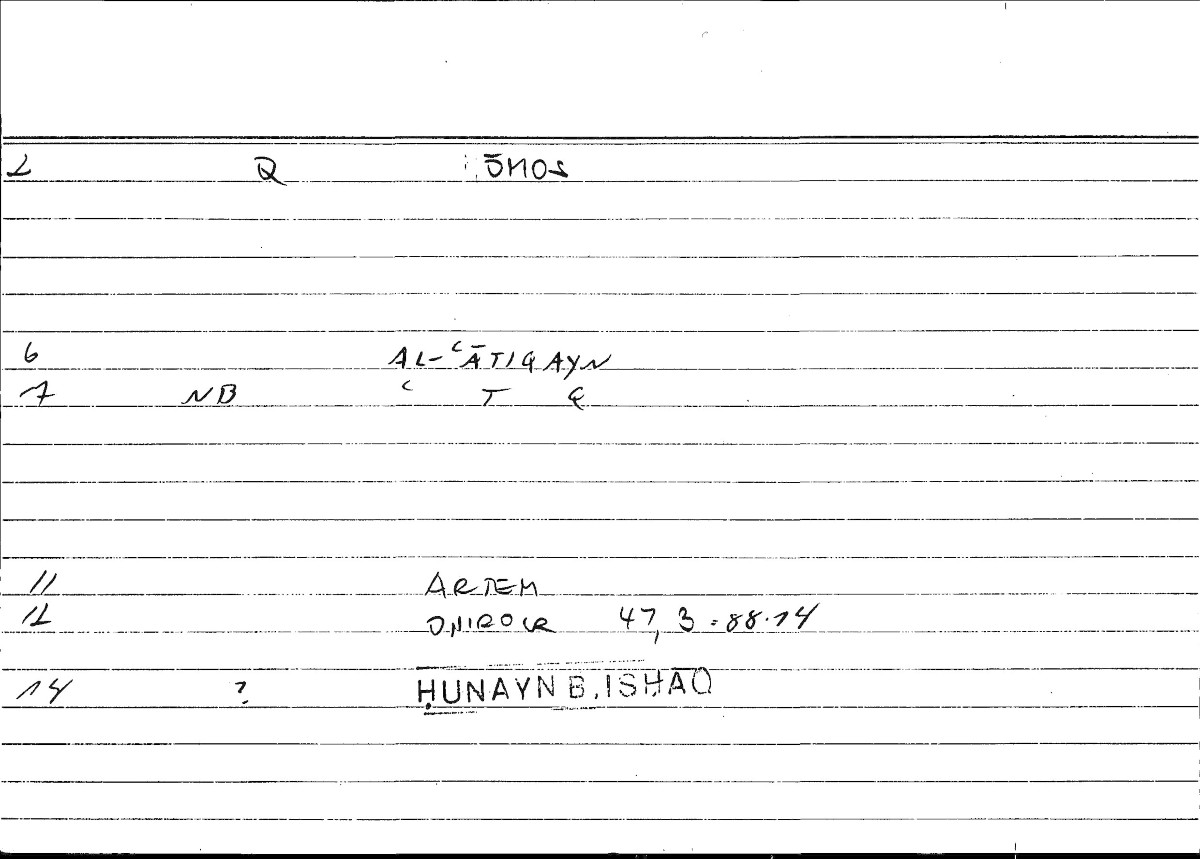 2 Q ŌMOS
6 AL-ʿĀTIQAYN
7 NB ʿ T Q
11 ARTEM
12 ONIROCR 47,3 = 88.14
14 ? ḤUNAYN B. ISḤĀQ